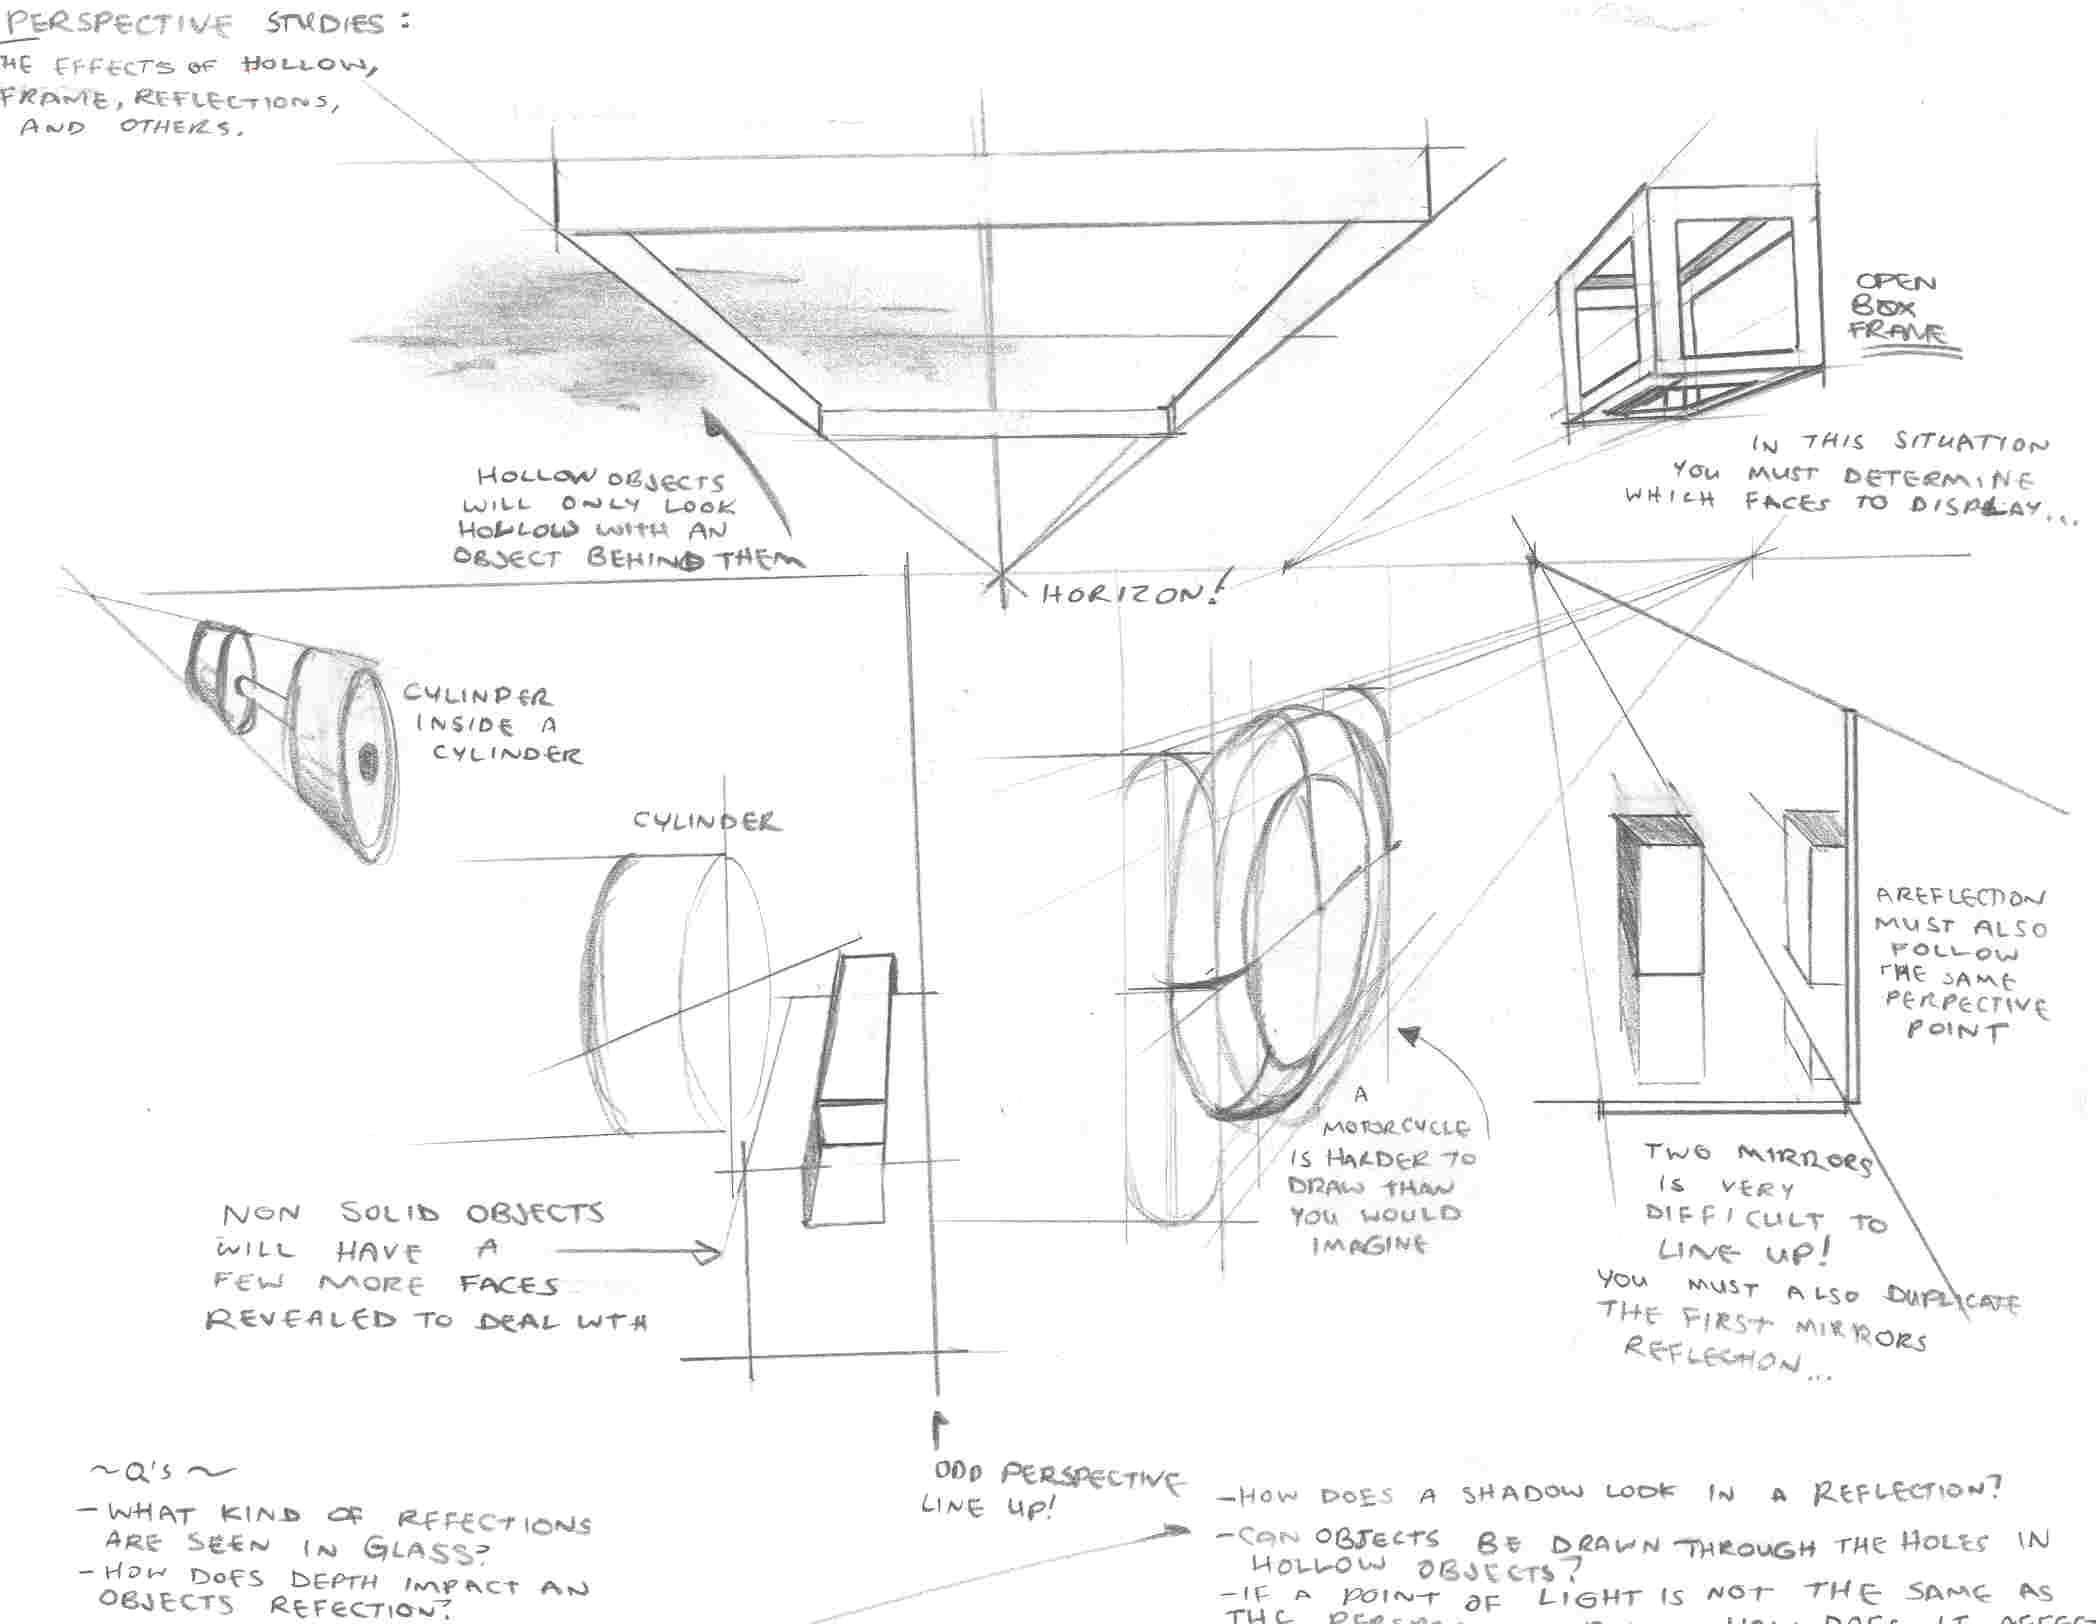 PERSPECTIVE STUDIES:
THE EFFECTS OF HOLLOW,
FRAME, REFLECTIONS,
AND OTHERS.
OPEN
BOX
FRAME
IN THIS SITUATION
YOU MUST DETERMINE
WHICH FACES TO DISPLAY...
HOLLOW OBJECTS
WILL ONLY LOOK
HOLLOW WITH AN
OBJECT BEHIND THEM
HORIZON!
CYLINDER
INSIDE A
CYLINDER
CYLINDER
A REFLECTION
MUST ALSO
FOLLOW
THE SAME
PERPECTIVE
POINT
A
MOTORCYCLE
IS HARDER TO
DRAW THAN
YOU WOULD
IMAGINE
TWO MIRRORS
IS VERY
DIFFICULT TO
LINE UP!
YOU MUST ALSO DUPLICATE
THE FIRST MIRRORS
REFLECTION...
NON SOLID OBJECTS
WILL HAVE A
FEW MORE FACES
REVEALED TO DEAL WITH
ODD PERSPECTIVE
LINE UP!
~Q'S~
-WHAT KIND OF REFECTIONS
ARE SEEN IN GLASS?
-HOW DOES DEPTH IMPACT AN
OBJECTS REFECTION?
-HOW DOES A SHADOW LOOK IN A REFLECTION?
-CAN OBJECTS BE DRAWN THROUGH THE HOLES IN
HOLLOW OBJECTS?
-IF A POINT OF LIGHT IS NOT THE SAME AS
THE